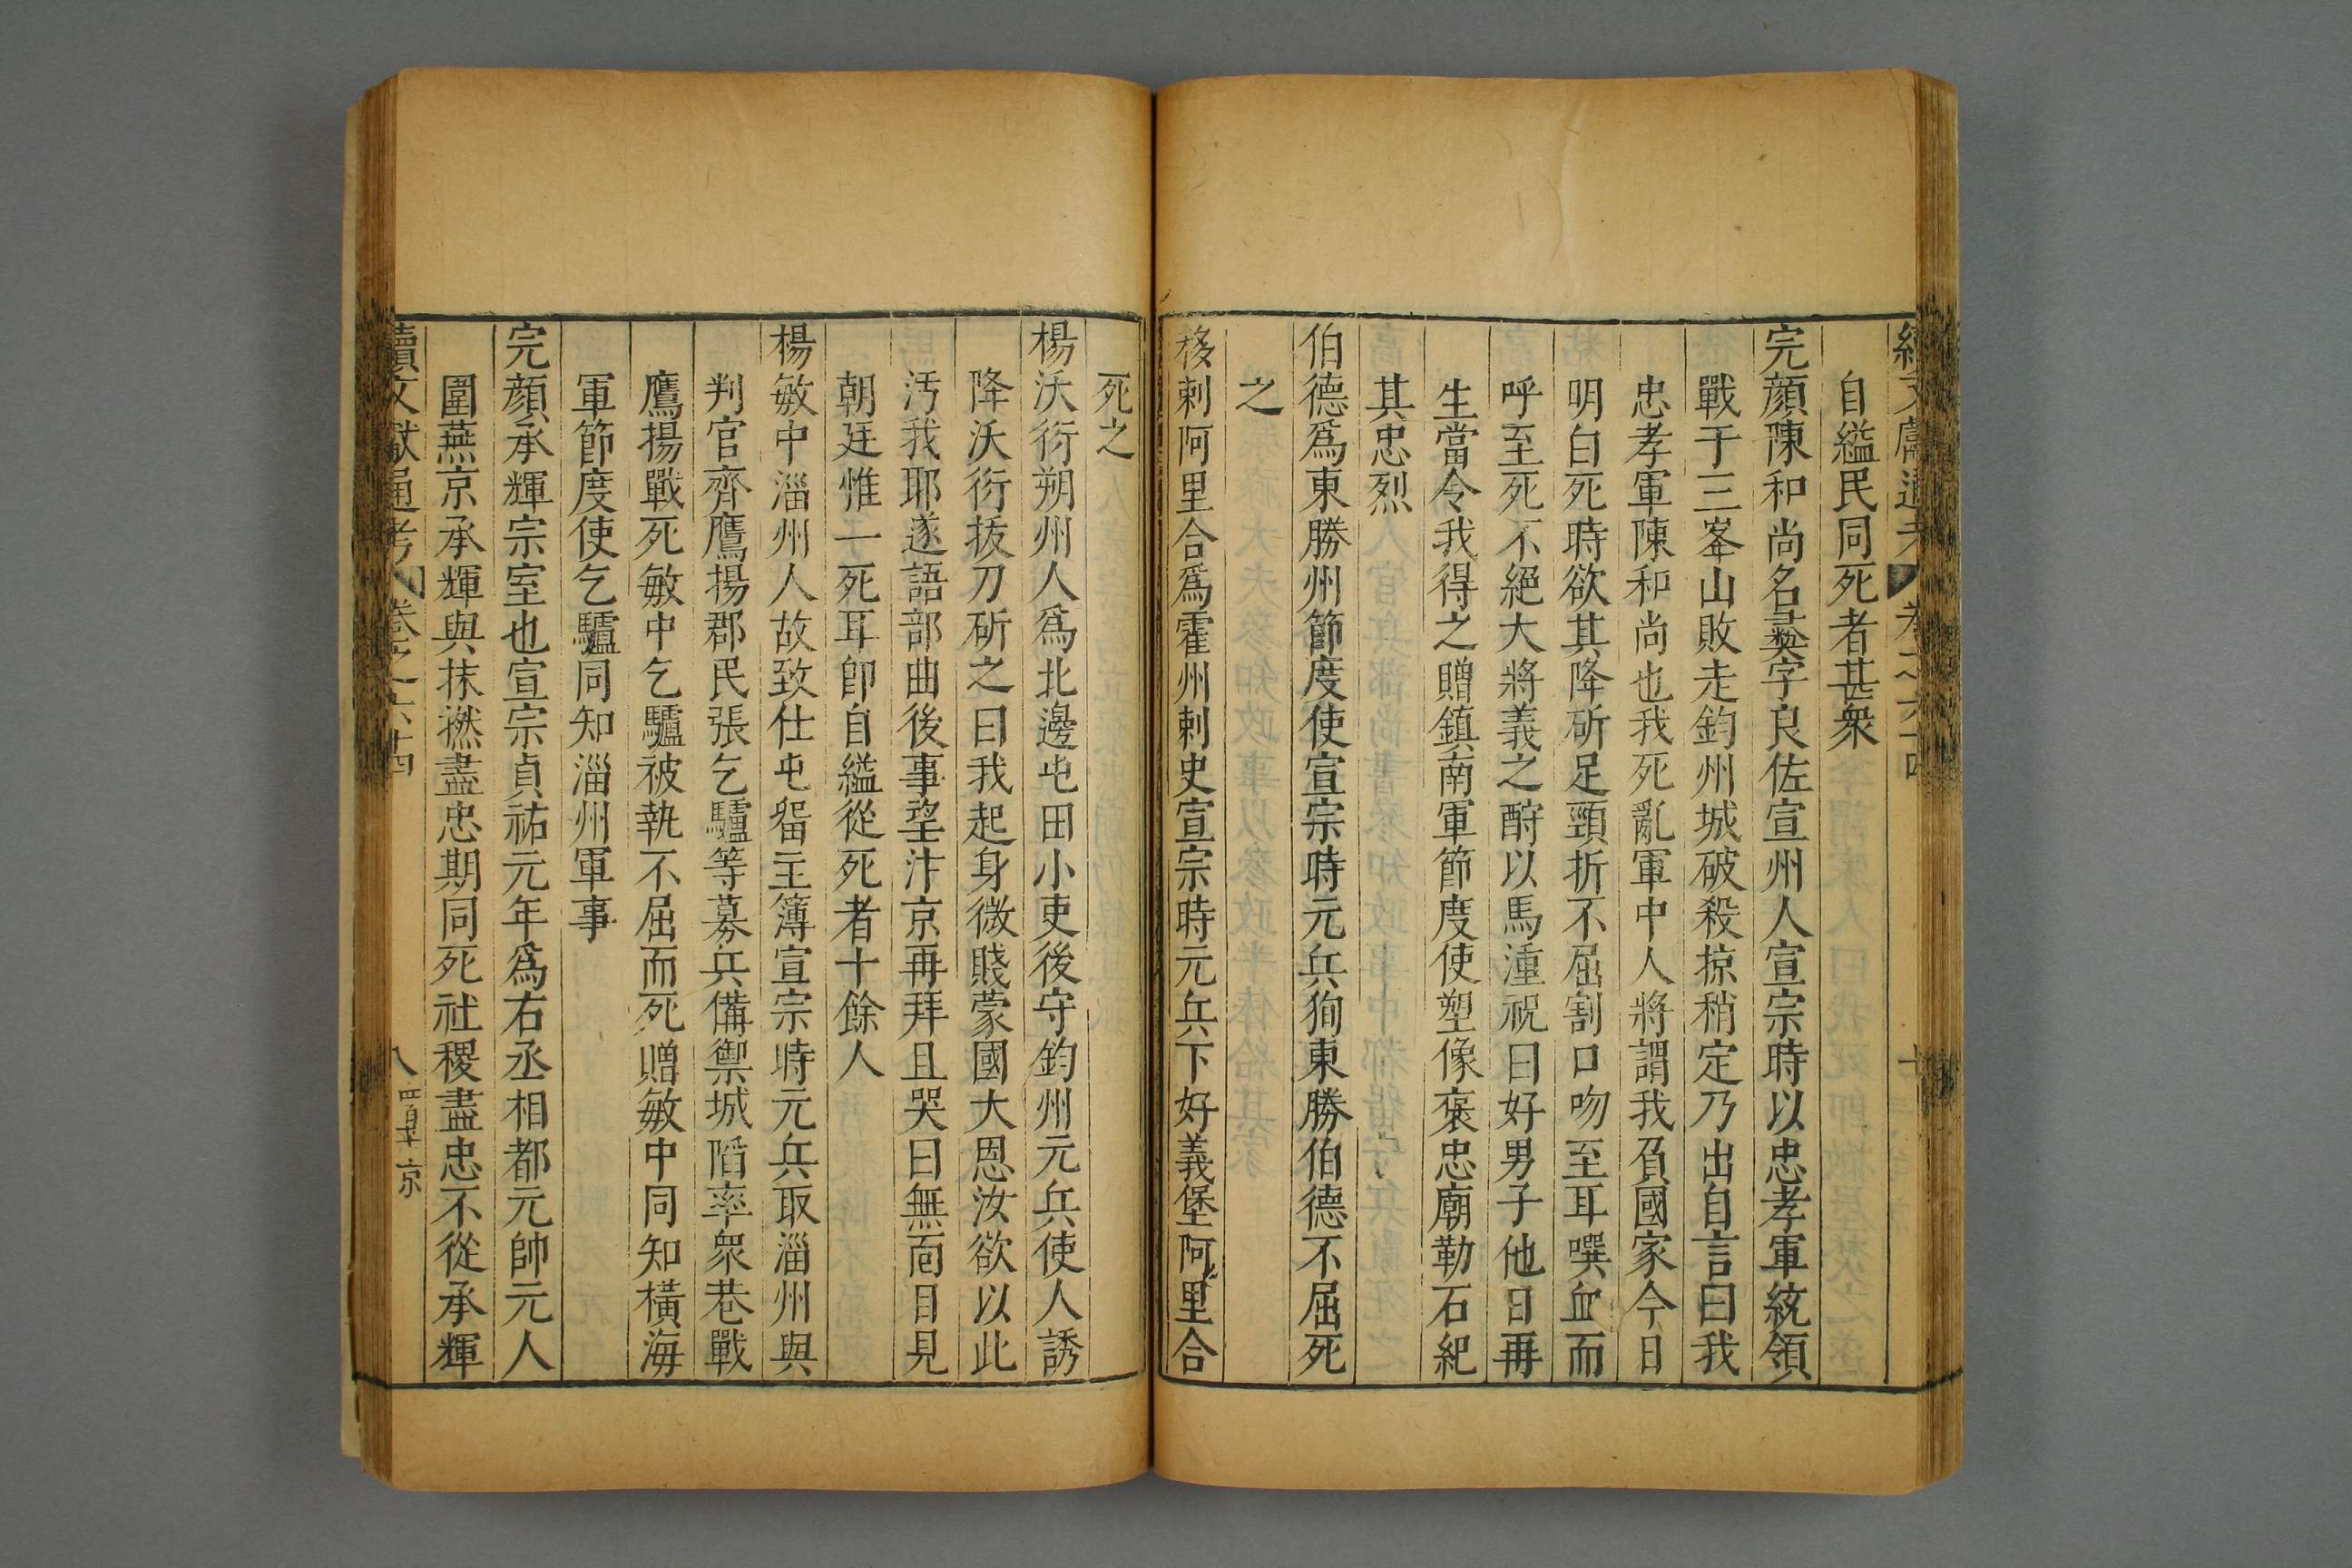 續文獻通考 卷之六十四
自縊民同死者甚衆
完顔陳和尚名彛字良佐宣州人宣宗時以忠孝軍統領
戰于三峯山敗走鈞州城破殺掠稍定乃出自言曰我
忠孝軍陳和尚也我死亂軍中人將謂我負國家今日
明白死時欲其降斫足頸折不屈割口吻至耳噀血而
呼至死不絕大將義之酹以馬湩祝曰好男子他日再
生當令我得之贈鎮南軍節度使塑像褒忠廟勒石紀
其忠烈
伯德爲東勝州節度使宣宗時元兵狥東勝伯德不屈死
之
移剌阿里合爲霍州刺史宣宗時元兵下好義堡阿里合
死之
楊沃衍朔州人爲北邊屯田小吏後守鈞州元兵使人誘
降沃衍拔刀斫之曰我起身微賤蒙國大恩汝欲以此
汚我耶遂語部曲後事望汴京再拜且哭曰無面目見
朝廷惟一死耳卽自縊從死者十餘人
楊敏中淄州人故致仕屯留主簿宣宗時元兵取淄州與
判官齊鷹揚郡民張乞驢等募兵備禦城陷率衆巷戰
鷹揚戰死敏中乞驢被執不屈而死贈敏中同知橫海
軍節度使乞驢同知淄州軍事
完顔承輝宗室也宣宗貞祐元年爲右丞相都元帥元人
圍燕京承輝與抹撚盡忠期同死社稷盡忠不從承輝
續文獻通考 卷之六十四 八